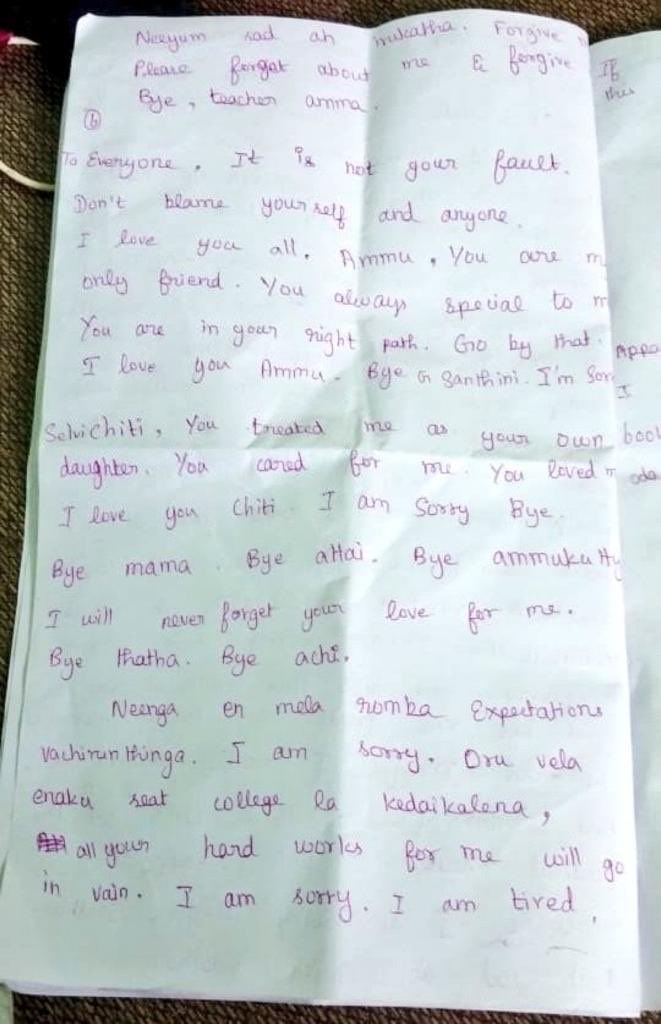 Neeyum sad ah irukatha. Forgive
Please forget about me & forgive
Bye, teacher amma.
6
To Everyone. It is not your fault.
Don't blame yourself and anyone.
I love you all. Ammu, You are m
only friend. You always special to m
You are in your right path. Go by that.
I love you Ammu. Bye G Santhini. I'm Sorr
SelviChiti, You treated me as your own
daughter. You cared for me. You loved
I love you Chiti. I am Sorry Bye.
Bye mama. Bye attai. Bye ammukutty
I will never forget your love for me.
Bye thatha. Bye achi.
Neenga en mela romba Expectations
vachirunthinga. I am sorry. Oru vela
enaku seat college la kedaikalena,
all your hard works for me will go
in vain. I am sorry. I am tired.
If
this
Appa
I
book